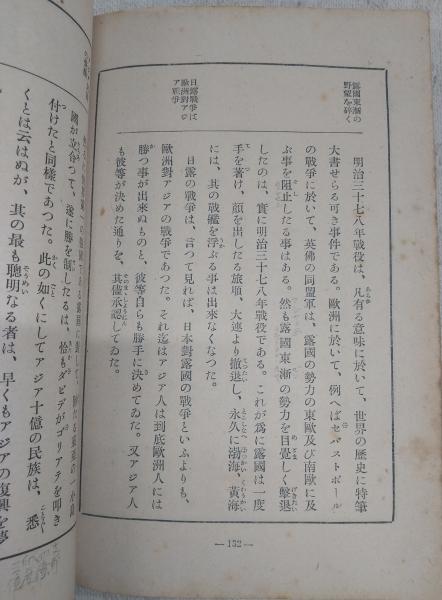 露國東漸の
野望を碎く
日露戰爭は
歐洲對アジ
ア戰爭
明治三十七八年戰役は、凡有る意味に於いて、世界の歷史に特筆
大書せらる可き事件である。歐洲に於いて、例へばセバストポール
の戰爭に於いて、英佛の同盟軍は、露國の勢力の東歐及び南歐に及
ぶ事を阻止したる事はある。然も露國東漸の勢力を目覺しく擊退
したのは、實に明治三十七八年戰役である。これが爲に露國は一度
手を著け、顏を出したる旅順、大連より撤退し、永久に渤海、黃海
には、其の戰艦を浮ぶる事は出來なくなつた。
日露の戰爭は、言つて見れば、日本對露國の戰爭といふよりも、
歐洲對アジアの戰爭であつた。それ迄はアジア人は到底歐洲人には
勝つ事が出來ぬものと、彼等自らも勝手に決めてゐた。又アジア人
も彼等が決めた通りを、其儘承認してゐた。
—132—
國が立合つて、遂に勝を制したるは、恰もダビデがゴリアテを叩き
付けたと同樣であつた。此の如くにしてアジア十億の民族は、悉
くとは云はぬが、其の最も聰明なる者は、早くもアジアの復興を夢